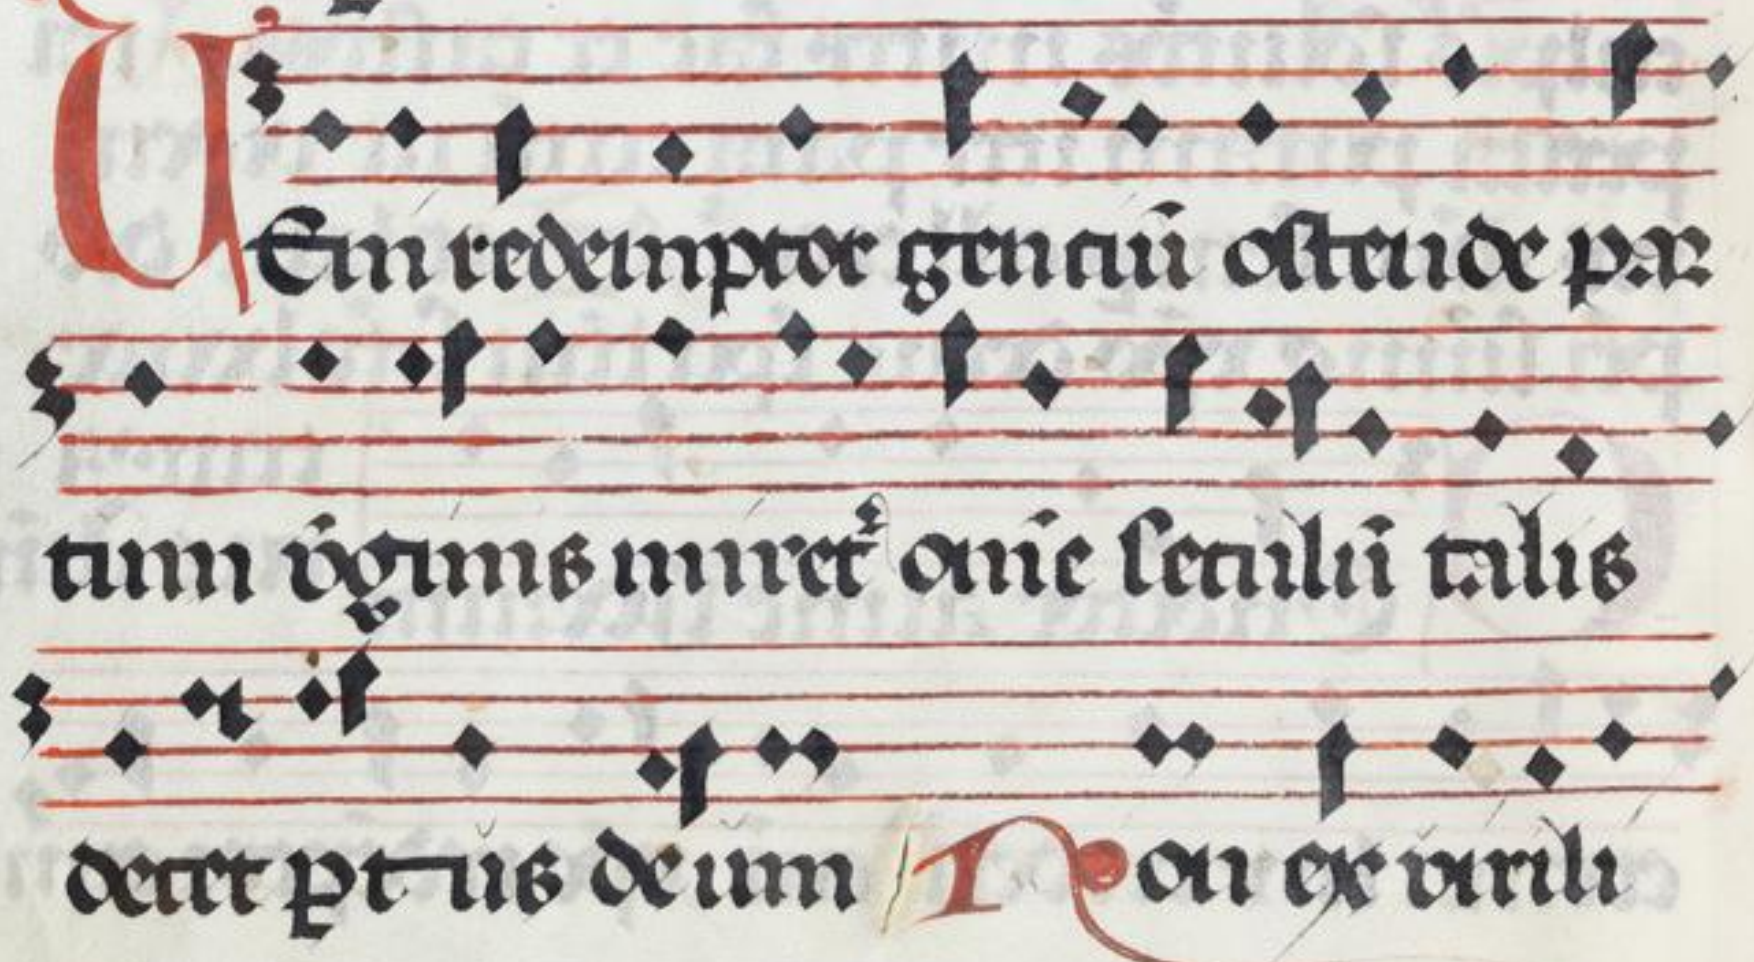 VEni redemptor genciū ostende par
tum v̄ginis miret᷑ om̄e seculū talis
decet ꝑtus deum Non ex virili